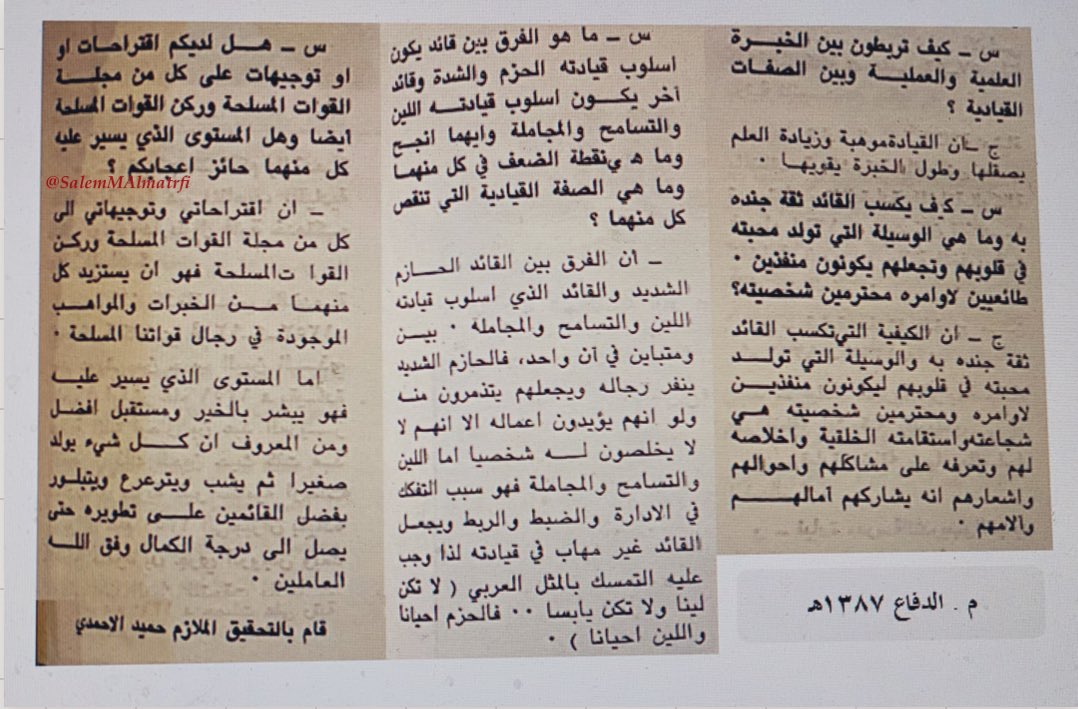 س ــ كيف تربطون بين الخبرة
العلمية والعملية وبين الصفات
القيادية ؟
ج ــ ان القيادة موهبة وزيادة العلم
يصقلها وطول الخبرة يقويها ٠
س ــ كيف يكسب القائد ثقة جنده
به وما هي الوسيلة التي تولد محبته
في قلوبهم وتجعلهم يكونون منفذين ٠
طائعيين لاوامره محترمين شخصيته؟
ج ــ ان الكيفية التي تكسب القائد
ثقة جنده به والوسيلة التي تولد
محبته في قلوبهم ليكونون منفذين
لاوامره ومحترمين شخصيته هي
شجاعته واستقامته الخلقية واخلاصه
لهم وتعرفه على مشاكلهم واحوالهم
واشعارهم انه يشاركهم آمالهم
وآلامهم ٠
م . الدفاع ١٣٨٧هـ
س ــ ما هو الفرق بين قائد يكون
اسلوب قيادته الحزم والشدة وقائد
آخر يكون اسلوب قيادته اللين
والتسامح والمجاملة وايهما انجح
وما هي نقطة الضعف في كل منهما
وما هي الصفة القيادية التي تنقص
كل منهما ؟
ــ ان الفرق بين القائد الحازم
الشديد والقائد الذي اسلوب قيادته
اللين والتسامح والمجاملة ٠ بين
ومتباين في آن واحد، فالحازم الشديد
ينفر رجاله ويجعلهم يتذمرون منه
ولو انهم يؤيدون اعماله الا انهم لا
لا يخلصون له شخصيا اما اللين
والتسامح والمجاملة فهو سبب التفكك
في الادارة والضبط والربط ويجعل
القائد غير مهاب في قيادته لذا وجب
عليه التمسك بالمثل العربي ( لا تكن
لينا ولا تكن يابسا ٠٠ فالحزم احيانا
واللين احيانا ) ٠
س ــ هل لديكم اقتراحات او
او توجيهات على كل من مجلة
القوات المسلحة وركن القوات المسلحة
ايضا وهل المستوى الذي يسير عليه
كل منهما حائز اعجابكم ؟
@SalemMAlmatrfi
ــ ان اقتراحاتي وتوجيهاتي الى
كل من مجلة القوات المسلحة وركن
القوا تالمسلحة فهو ان يستزيد كل
منهما من الخبرات والمواهب
الموجودة في رجال قواتنا المسلحة ٠
اما المستوى الذي يسير عليه
فهو يبشر بالخير ومستقبل افضل
ومن المعروف ان كل شيء يولد
صغيرا ثم يشب ويترعرع ويتبلور
بفضل القائمين على تطويره حتى
يصل الى درجة الكمال وفق الله
العاملين ٠
قام بالتحقيق الملازم حميد الاحمدي